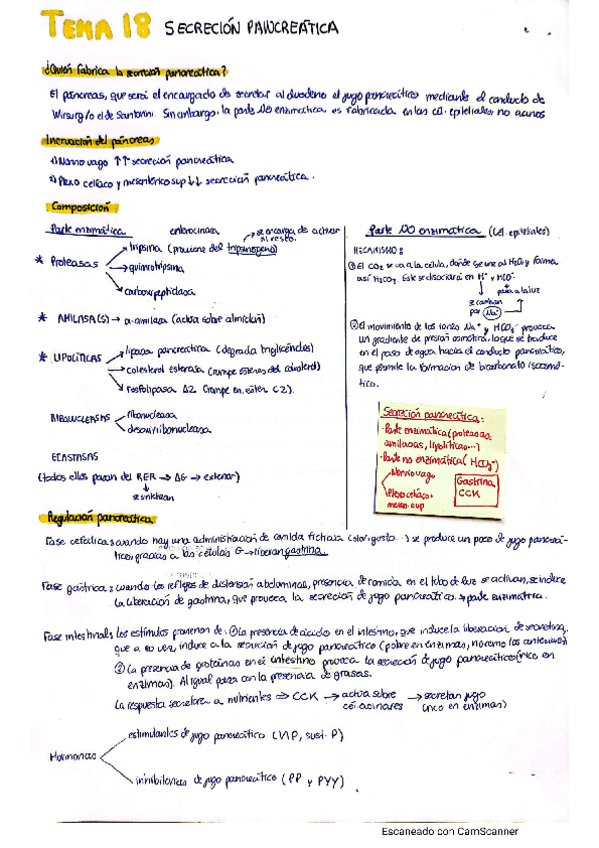 TEMA 18 SECRECIÓN PANCREÁTICA
¿Quién fabrica la secreción pancreática?
El páncreas, que será el encargado de secretar al duodeno el jugo pancreático mediante el conducto de
Wirsurg/o el de Santorini. Sin embargo, la parte NO enzimática es fabricada en las cél. epiteliales, no acinos
Inervación del páncreas
1) Nervio vago ↑↑ secreción pancreática
2) Plexo celíaco y mesentérico sup ↓↓ secreción pancreática.
Composición
Parte enzimática
enterocinasa
→ se encarga de activar
el resto.
* Proteasas
→ tripsina (proviene del tripsinógeno)
→ quimiotripsina
→ carboxipeptidasa
* AMILASA(S) → α-amilasa (actúa sobre almidón)
* LIPOLÍTICAS
→ lipasa pancreática (degrada triglicéridos)
→ colesterol esterasa (rompe ésteres del colesterol)
→ fosfolipasa A2 (rompe en éster C2).
RIBONUCLEASAS
ribonucleasa
desoxirribonucleasa
ELASTASAS
(todos ellos pasan del RER → AG → exterior)
↓
se sintetizan
Parte NO enzimática (cél. epiteliales)
MECANISMO:
① El CO2 se va a la célula, donde se une al H2O y forma
así H2CO3. Este se disociará en H+ y HCO3-
↓ ↘ pasa a la luz
se cambian
por Na+
② El movimiento de los iones Na+ y HCO3- provoca
un gradiente de presión osmótica, lo que se traduce
en el paso de agua hacia el conducto pancreático,
que permite la formación de bicarbonato isosmó-
tico.
Secreción pancreática:
- Parte enzimática (proteasas,
amilasas, lipolíticas...)
- Parte no enzimática (HCO3-)
Nervio vago
Plexo celíaco,
mesen. sup
Gastrina
CCK
Regulación pancreática
Fase cefálica: cuando hay una administración de comida ficticia (olor, gusto...) se produce un poco de jugo pancreá-
tico, gracias a las células G → liberan gastrina.
Fase gástrica: cuando los reflejos de distensión abdominales, presencia de comida en el tubo de luz se activan, se induce
la liberación de gastrina, que provoca la secreción de jugo pancreático → parte enzimática.
Fase intestinal: los estímulos provienen de: ① La presencia de ácido en el intestino, que induce la liberación de secretina,
que a su vez, induce a la secreción de jugo pancreático (pobre en enzimas, no como los anteriores)
② La presencia de proteínas en el intestino provoca la secreción de jugo pancreático (rico en
enzimas). Al igual pasa con la presencia de grasas.
La respuesta secretora a nutrientes ⇒ CCK → actúa sobre → secretan jugo
cél. acinares (rico en enzimas)
Hormonas
estimulantes de jugo pancreático (VIP, sust. P)
inhibitorias de jugo pancreático (PP y PYY)
Escaneado con CamScanner